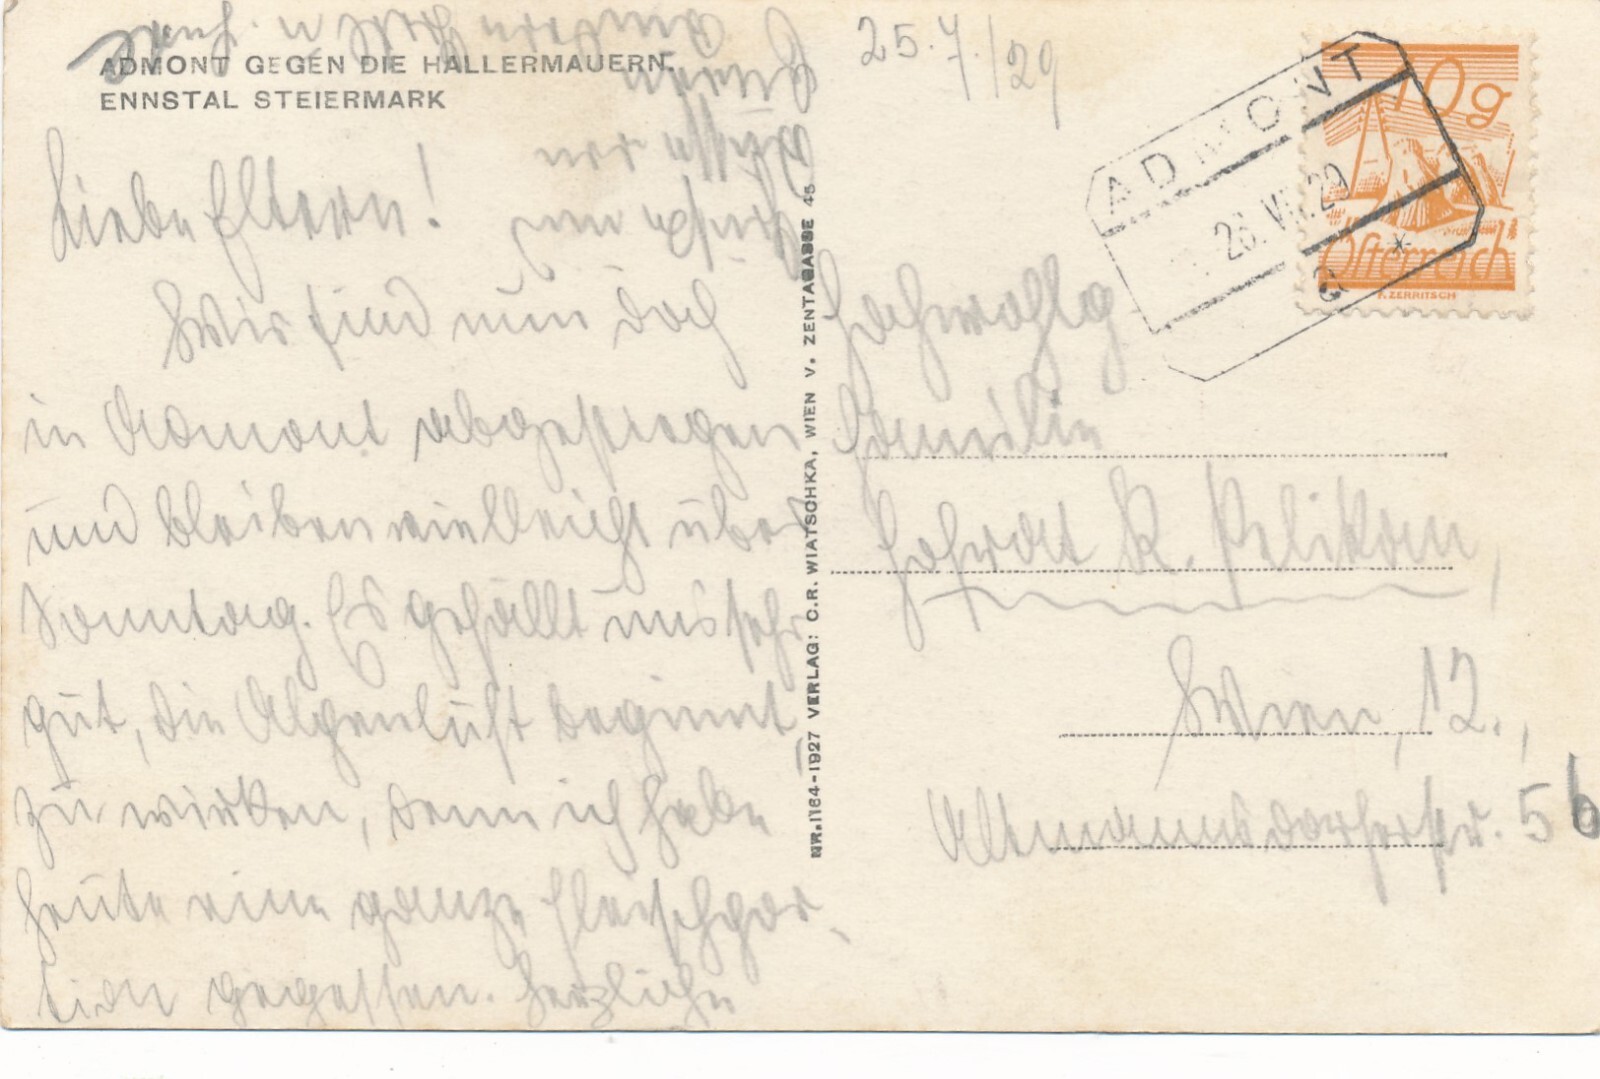 ADMONT GEGEN DIE HALLERMAUERN.
ENNSTAL STEIERMARK
25.7./29
Liebe Eltern!
Wir sind nun doch
in Admont abgestiegen
und bleiben vielleicht über
Sonntag. Es gefällt uns sehr
gut, die Alpenluft beginnt
zu wirken, denn ich habe
heute eine ganze Fleischpor
tion gegessen. Herzliche
Grüße von
NR. 1164-1927 VERLAG: C.R. WIATSCHKA, WIEN V. ZENTAGASSE 45
ADMONT
26.VII.29
a *
10g
Österreich
F. ZERRITSCH
Hochwohlg
Familie
Hofrat R. Pelikan,
Wien, 12.,
Altmannsdorferstr. 56